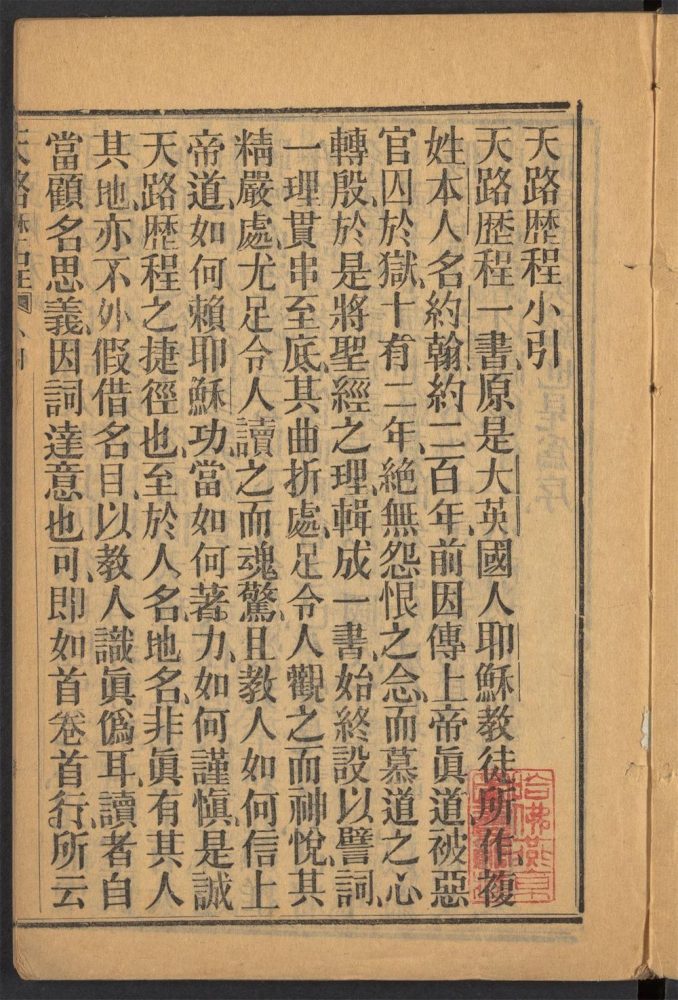 天路歴程小引
天路歴程一書原是大英國人耶穌教徒所作、複
姓本人名約翰、約二百年前因傳上帝眞道、被惡
官囚於獄、十有二年、絶無怨恨之念、而慕道之心
轉殷、於是將聖經之理、輯成一書、始終設以譬詞、
一理貫串至底、其曲折處、足令人觀之而神悅、其
精嚴處、尤足令人讀之而魂驚、且教人如何信上
帝道、如何賴耶穌功、當如何著力、如何謹愼、是誠
天路歴程之捷徑也、至於人名地名、非眞有其人
其地、亦不外假借名目、以教人識眞僞耳、讀者自
當顧名思義、因詞達意也可、即如首卷首行、所云
天路
哈佛燕京